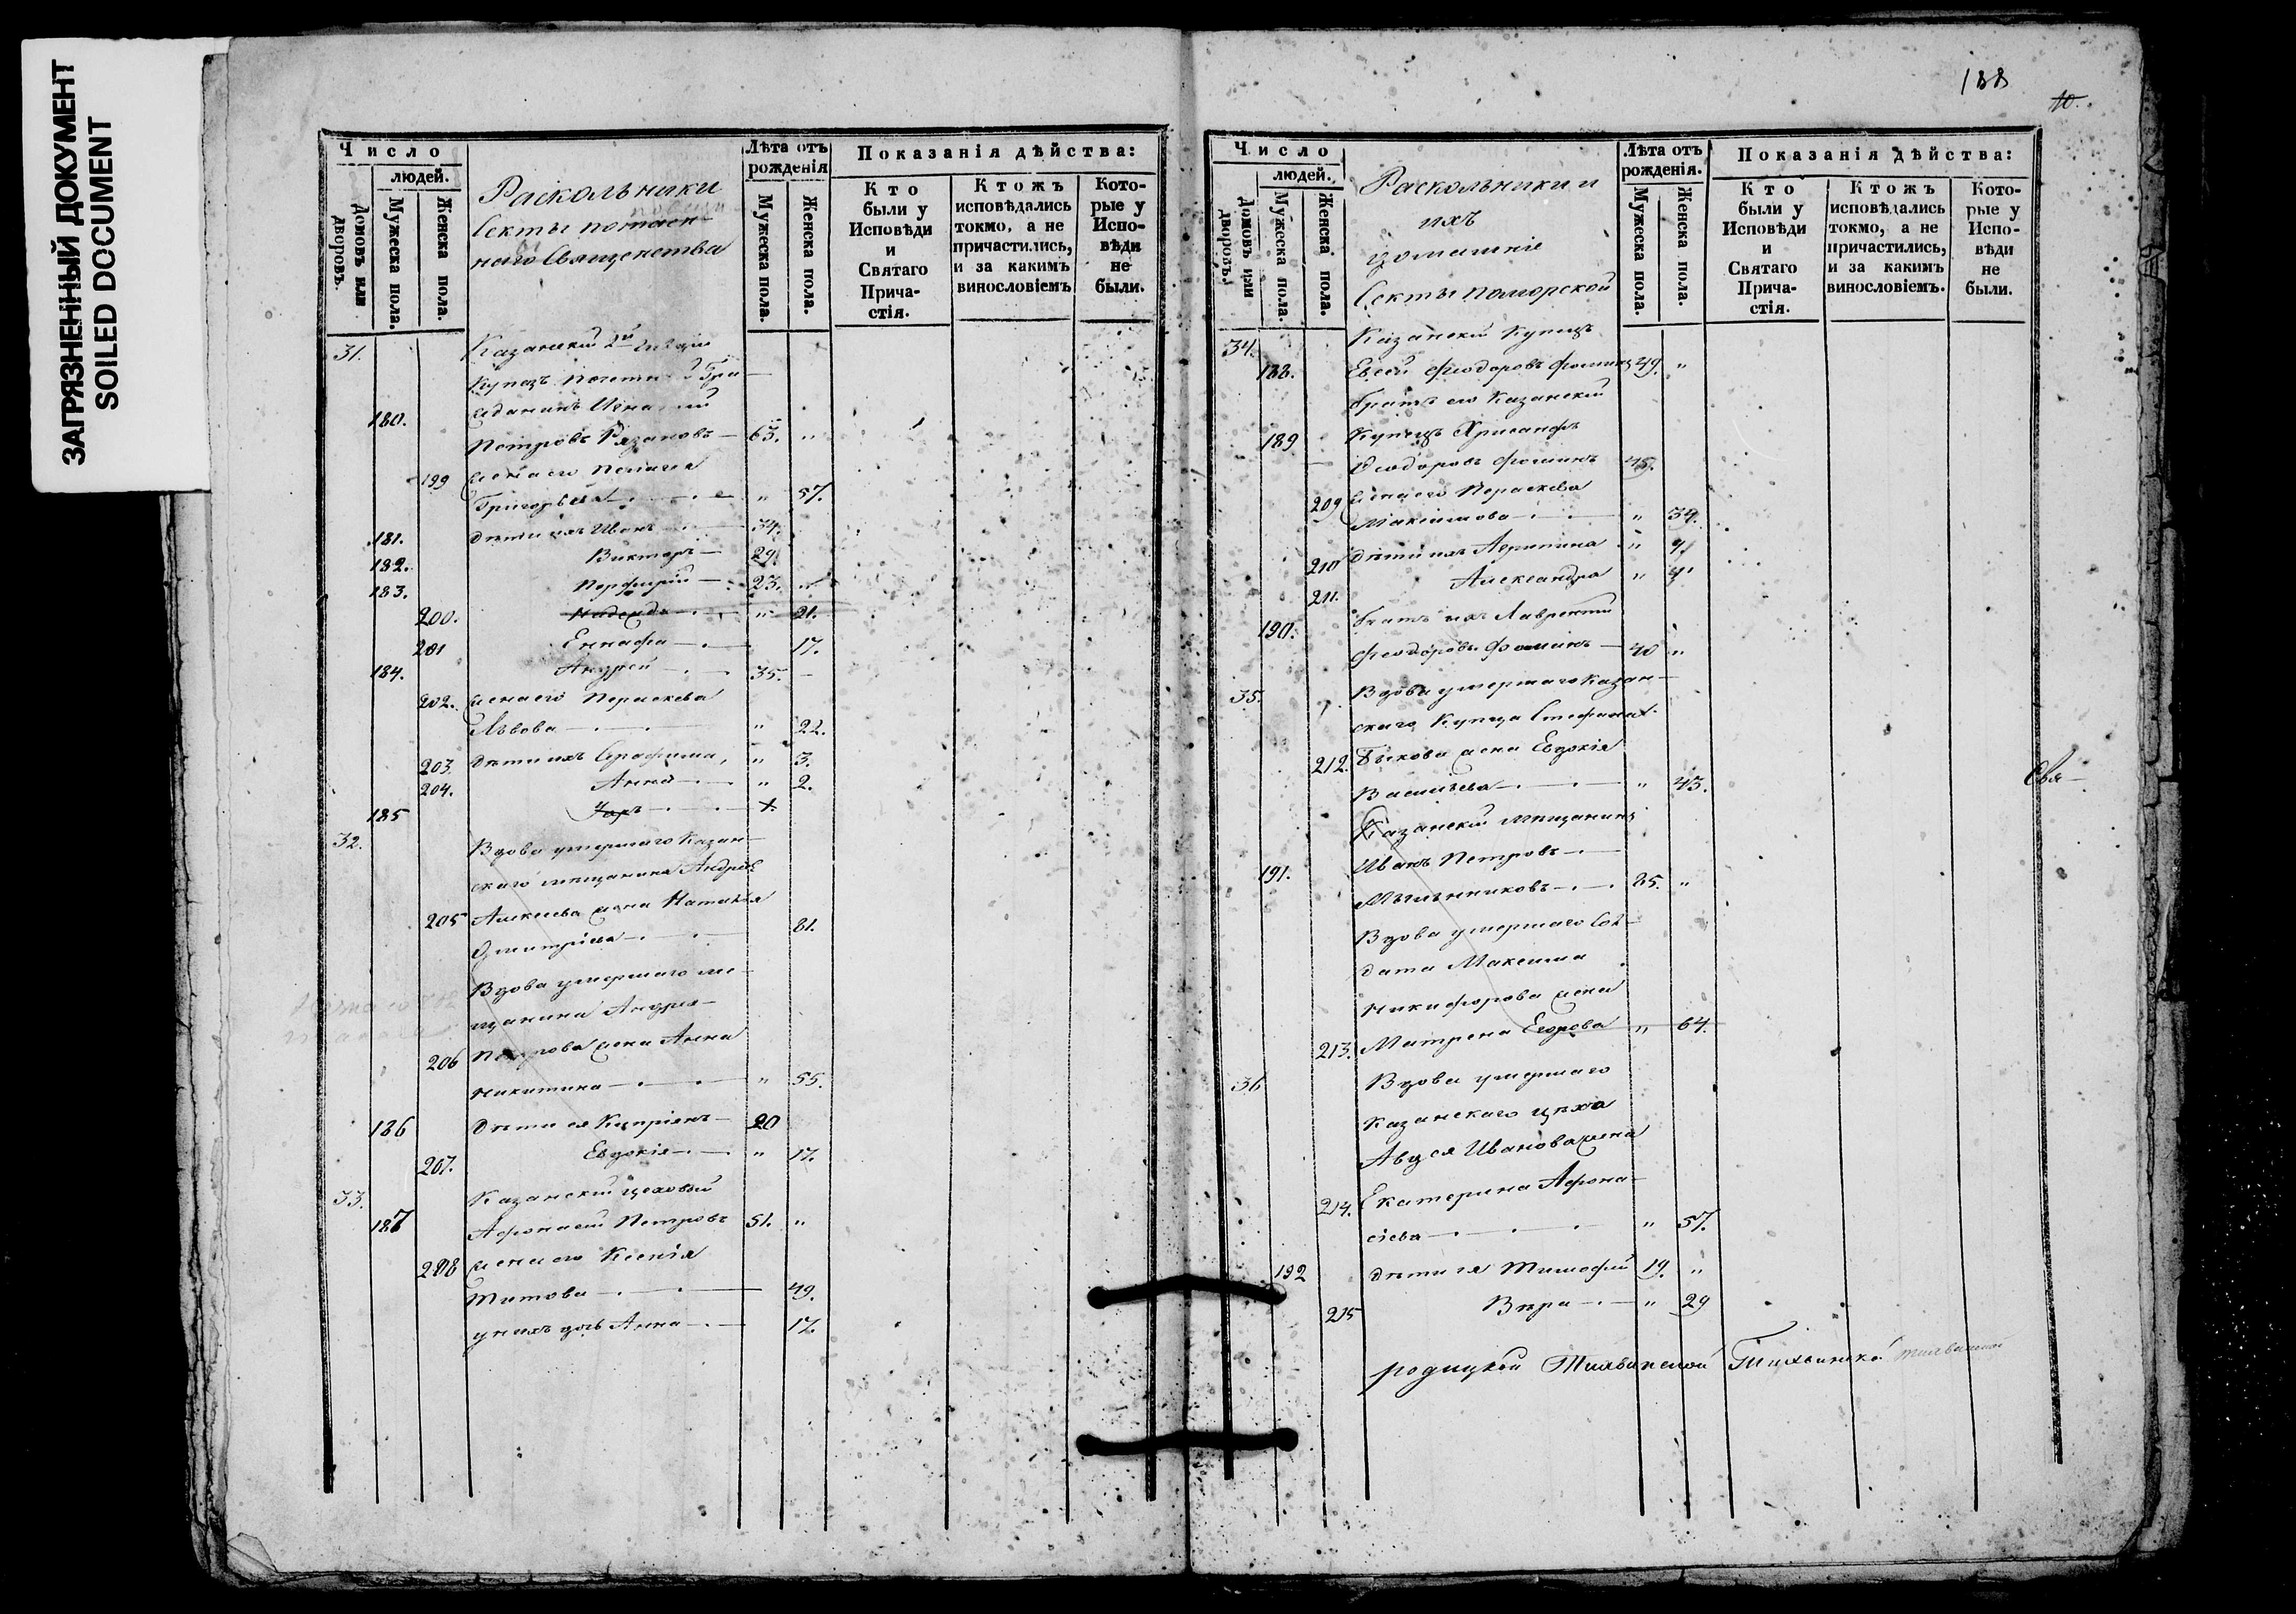 ЗАГРЯЗНЕННЫЙ ДОКУМЕНТ
SOILED DOCUMENT
Число
людей.
Домовъ или дворовъ.
Мужеска пола.
Женска пола.
Раскольники
Секты
Священства
Лѣта отъ рожденія
Мужеска пола.
Женска пола.
Показанія дѣйства:
Кто были у Исповѣди и Святаго Прича-стія.
Ктожъ исповѣдались токмо, а не причастились, и за какимъ винословіемъ
Кото-рые у Испо-вѣди не были.
31. Казанскій 2й
Купецъ
180.
Петровъ Рязановъ — 63. "
199 жена его Пелагея
Григорьева — " 57.
181. дѣти ихъ Иванъ — 34.
182. Викторъ — 29.
183. Порфирій — 23. "
200. Надежда — " 21.
201 Еннафа — 17.
184. Андрей — 35. -
202. жена его Параскева
Львова — " 22.
203. дѣти ихъ Серафима, " 3.
204. Анна — " 2.
185
32. Вдова умершаго Казан-
скаго мѣщанина Андрея
205 Алексѣева жена Наталья
Дмитріева — 81.
Вдова умершаго мѣ-
щанина Андрея
206 Петрова жена Анна
Никитина — " 55.
186 дѣти ея Кипріянъ — 20
207. Евдокія — " 17.
33. Казанскій цеховый
187 Афонасій Петровъ 51. "
208 жена его Ксенія
Титова — 49.
у нихъ дочь Анна — 17.
188
10.
Число
людей.
Домовъ или дворовъ.
Мужеска пола.
Женска пола.
Раскольники и
ихъ
домашніе
Секты поморской
Лѣта отъ рожденія.
Мужеска пола.
Женска пола.
Показанія дѣйства:
Кто были у Исповѣди и Святаго Прича-стія.
Ктожъ исповѣдались токмо, а не причастились, и за какимъ винословіемъ.
Кото-рые у Испо-вѣди не были.
34. Казанскій Купецъ
188. Евсей Феодоровъ Фоминъ 49. "
братъ его Казанскій
189 Купецъ Хрисанфъ
Феодоровъ Фоминъ 45.
209 жена его Параскева
Максимова — " 34.
210 дѣти ихъ Агрипина "
211. Александра "
190. братъ ихъ Лаврентій
Феодоровъ Фоминъ — 40 "
35. Вдова умершаго Казан-
скаго Купца Стефана
212. Быкова жена Евдокія
Васильева — " 43.
Свя-
Казанскій мѣщанинъ
191. Иванъ Петровъ —
Мыльниковъ — 25. "
Вдова умершаго Сол-
дата Максима
Никифорова жена
213. Матрена Егорова " 64.
36 Вдова умершаго
Казанскаго цѣха
Иванова жена
214. Екатерина Афона-
сіева — " 57.
192 дѣти ея Тимофей 19. "
215 Вѣра — " 29